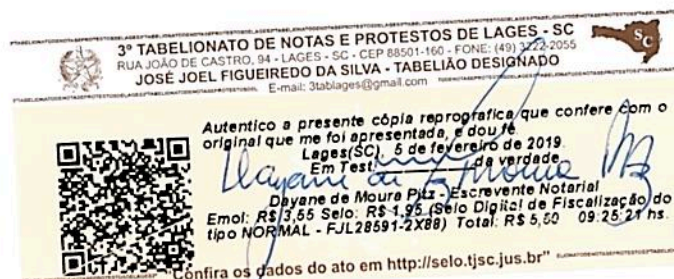 3º TABELIONATO DE NOTAS E PROTESTOS DE LAGES - SC
RUA JOÃO DE CASTRO, 94 - LAGES - SC - CEP 88501-160 - FONE: (49) 3222-2055
JOSÉ JOEL FIGUEIREDO DA SILVA - TABELIÃO DESIGNADO
E-mail: 3tablages@gmail.com
SC
Autentico a presente cópia reprografica que confere com o
original que me foi apresentada, e dou fé.
Lages(SC), 5 de fevereiro de 2019.
Em Test. da verdade
Dayane de Moura Pitz
Dayane de Moura Pitz - Escrevente Notarial
Emol: R$ 3,55 Selo: R$ 1,95 (Selo Digital de Fiscalização do
tipo NORMAL - FJL28591-2X88) Total: R$ 5,50 09:25:21 hs.
"Confira os dados do ato em http://selo.tjsc.jus.br"